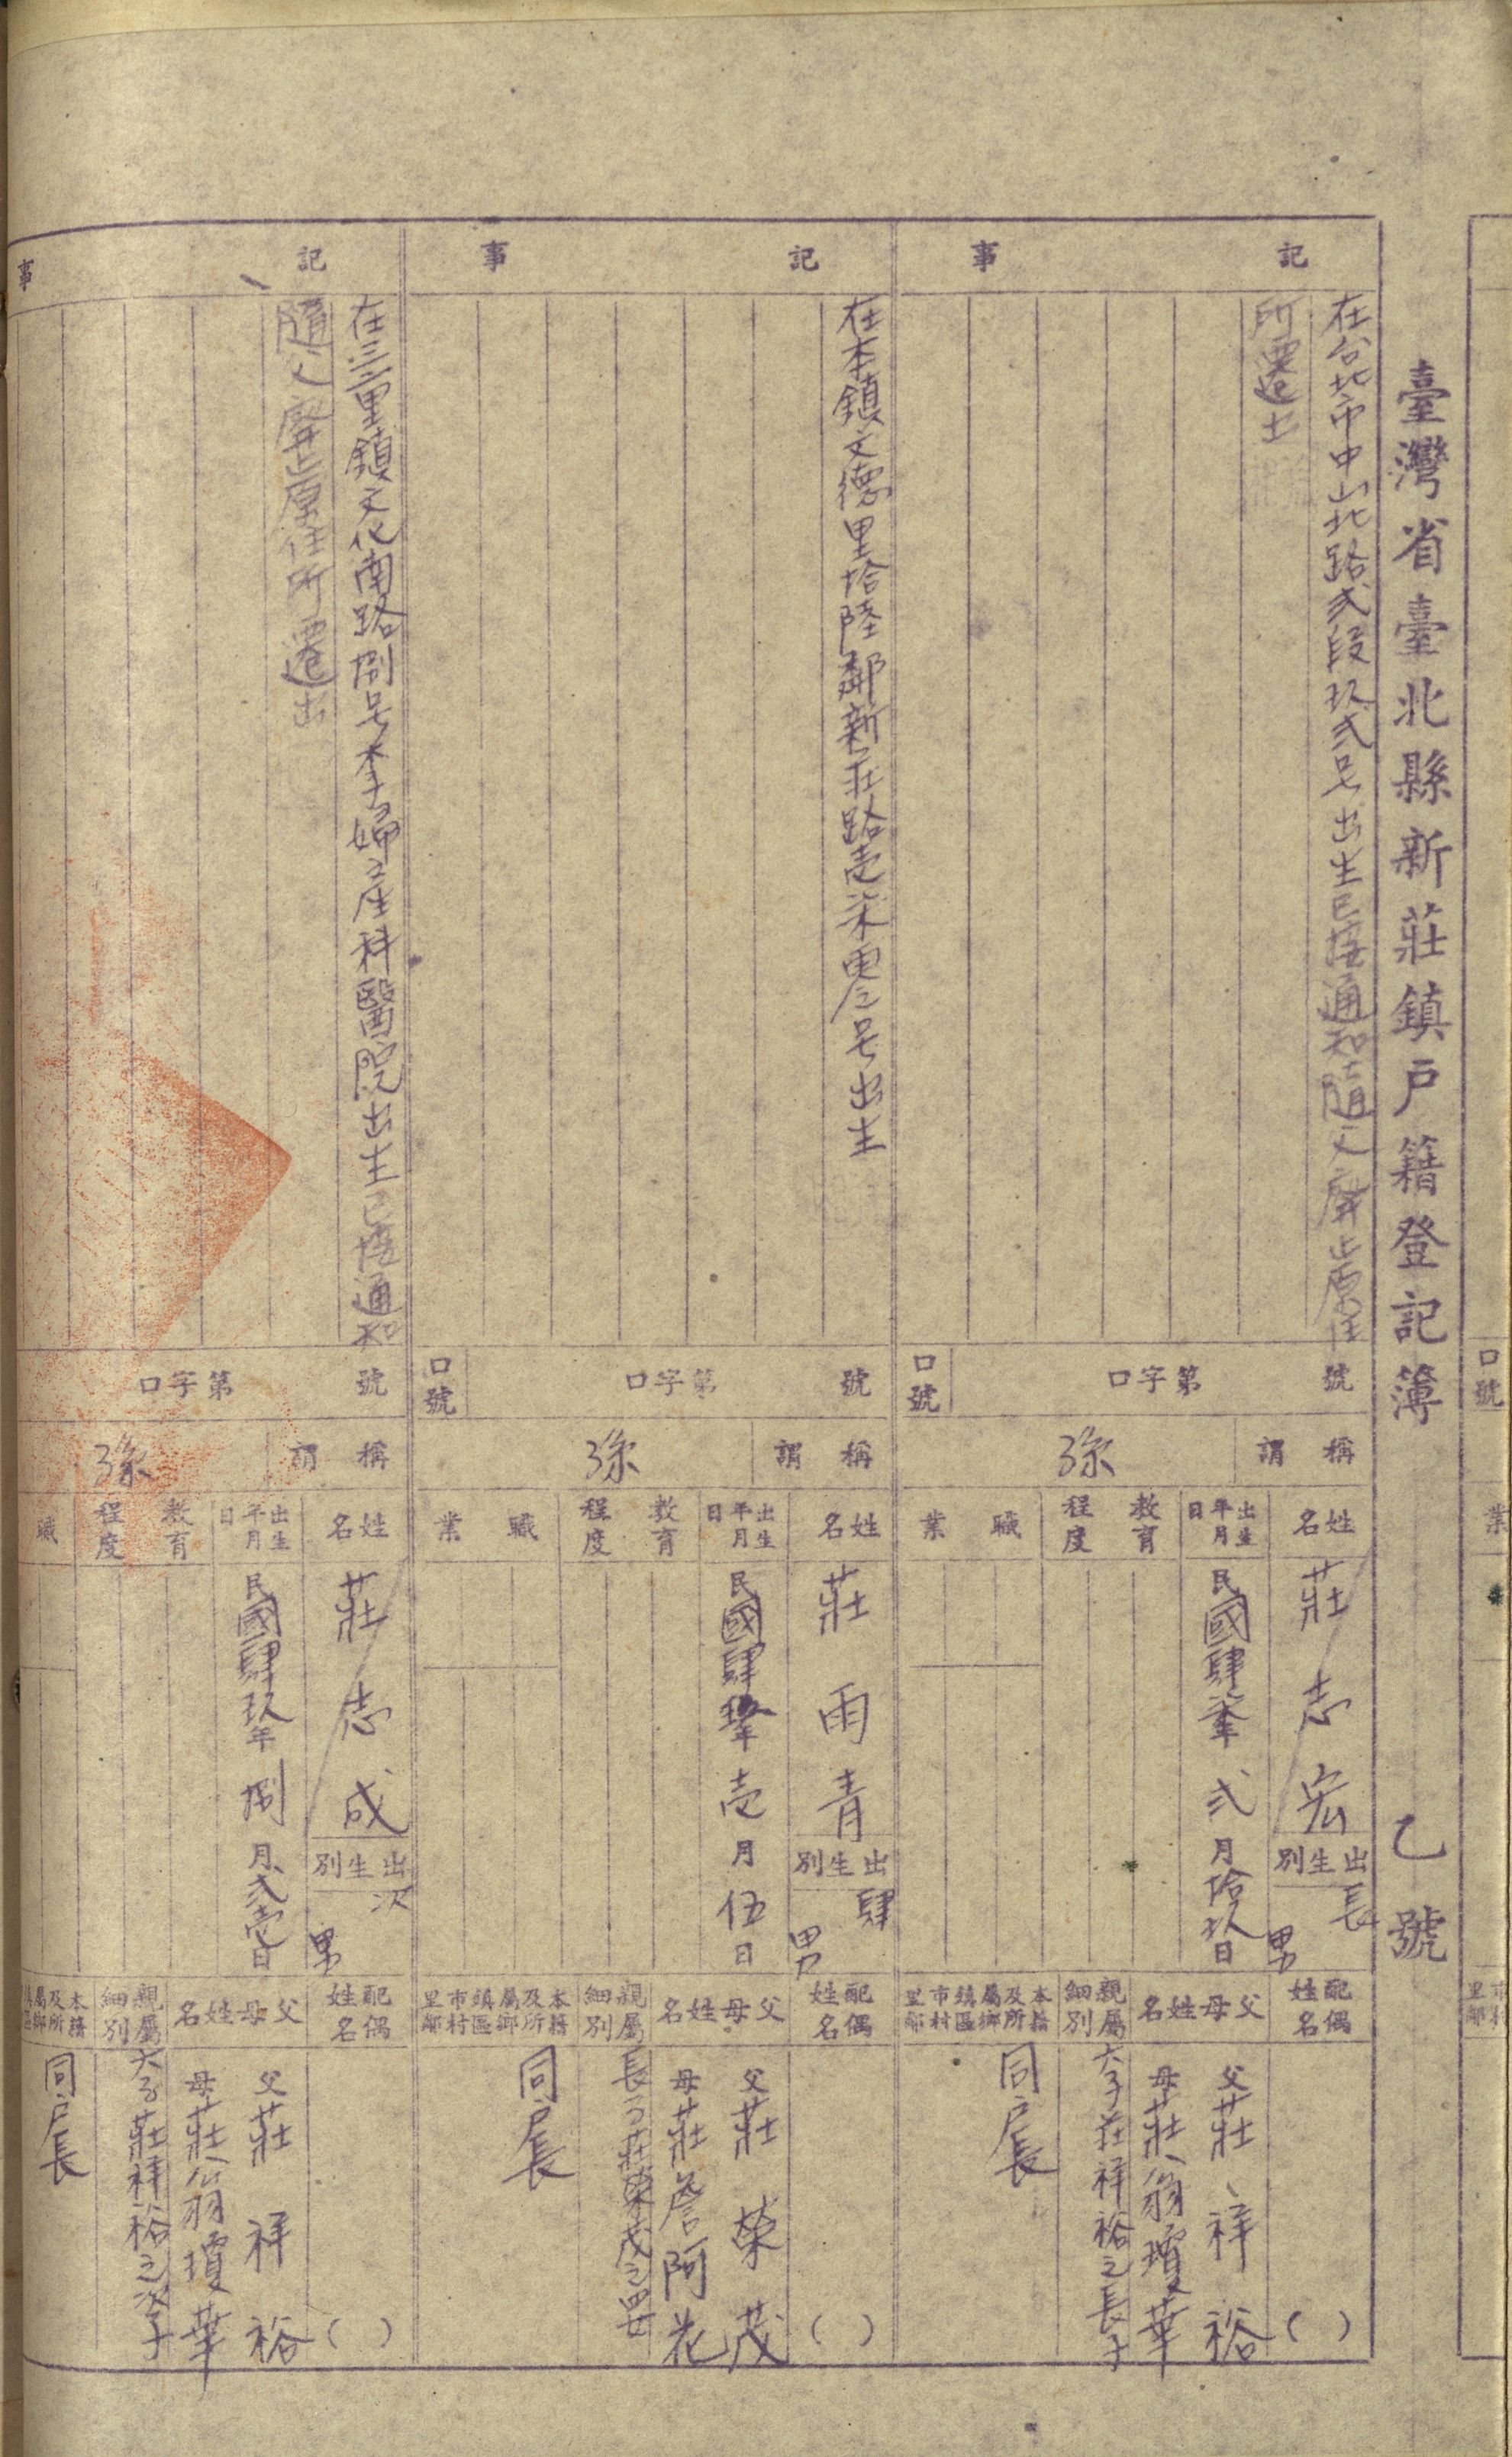 臺灣省臺北縣新莊鎮戶籍登記簿 乙號
記事
在台北市中山北路弍段玖弍号出生已接通知隨父廢止原住
所遷出
口號
號 第字口
稱謂
孫
姓名
莊志宏
出生別
長男
出生年月日
民國肆柒年弍月拾玖日
教育程度
職業
配偶姓名
( )
父母姓名
父莊祥裕
母莊翁瓊華
親屬細別
六子莊祥裕之長子
本籍及所屬鄉鎮區市村里鄰
同戶長
記事
在本鎮文德里拾陸鄰新莊路壱柒号出生
口號
號 第字口
稱謂
孫
姓名
莊雨青
出生別
肆男
出生年月日
民國肆年壱月伍日
教育程度
職業
配偶姓名
( )
父母姓名
父莊榮茂
母莊詹阿花
親屬細別
長子莊榮茂之四女
本籍及所屬鄉鎮區市村里鄰
同戶長
記事
在三重鎮文化南路捌号李婦產科醫院出生已接通知
隨父廢止原住所遷出
號 第字口
稱謂
孫
姓名
莊志成
出生別
次男
出生年月日
民國肆玖年捌月弍壱日
教育程度
職
配偶姓名
( )
父母姓名
父莊祥裕
母莊翁瓊華
親屬細別
六子莊祥裕之次子
本籍及所屬鄉鎮區
同戶長
口號
業
市村里鄰